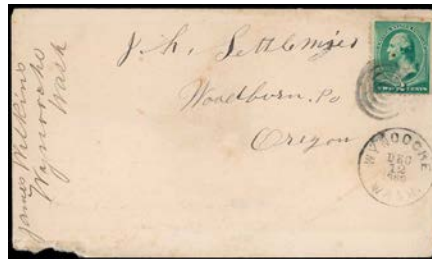 James Wilkins
Wynooche
Wash
J. H. Settlemier
Woodburn. Po
Oregon
TWO CENTS
WYNOOCHE
DEC
12
WASH.